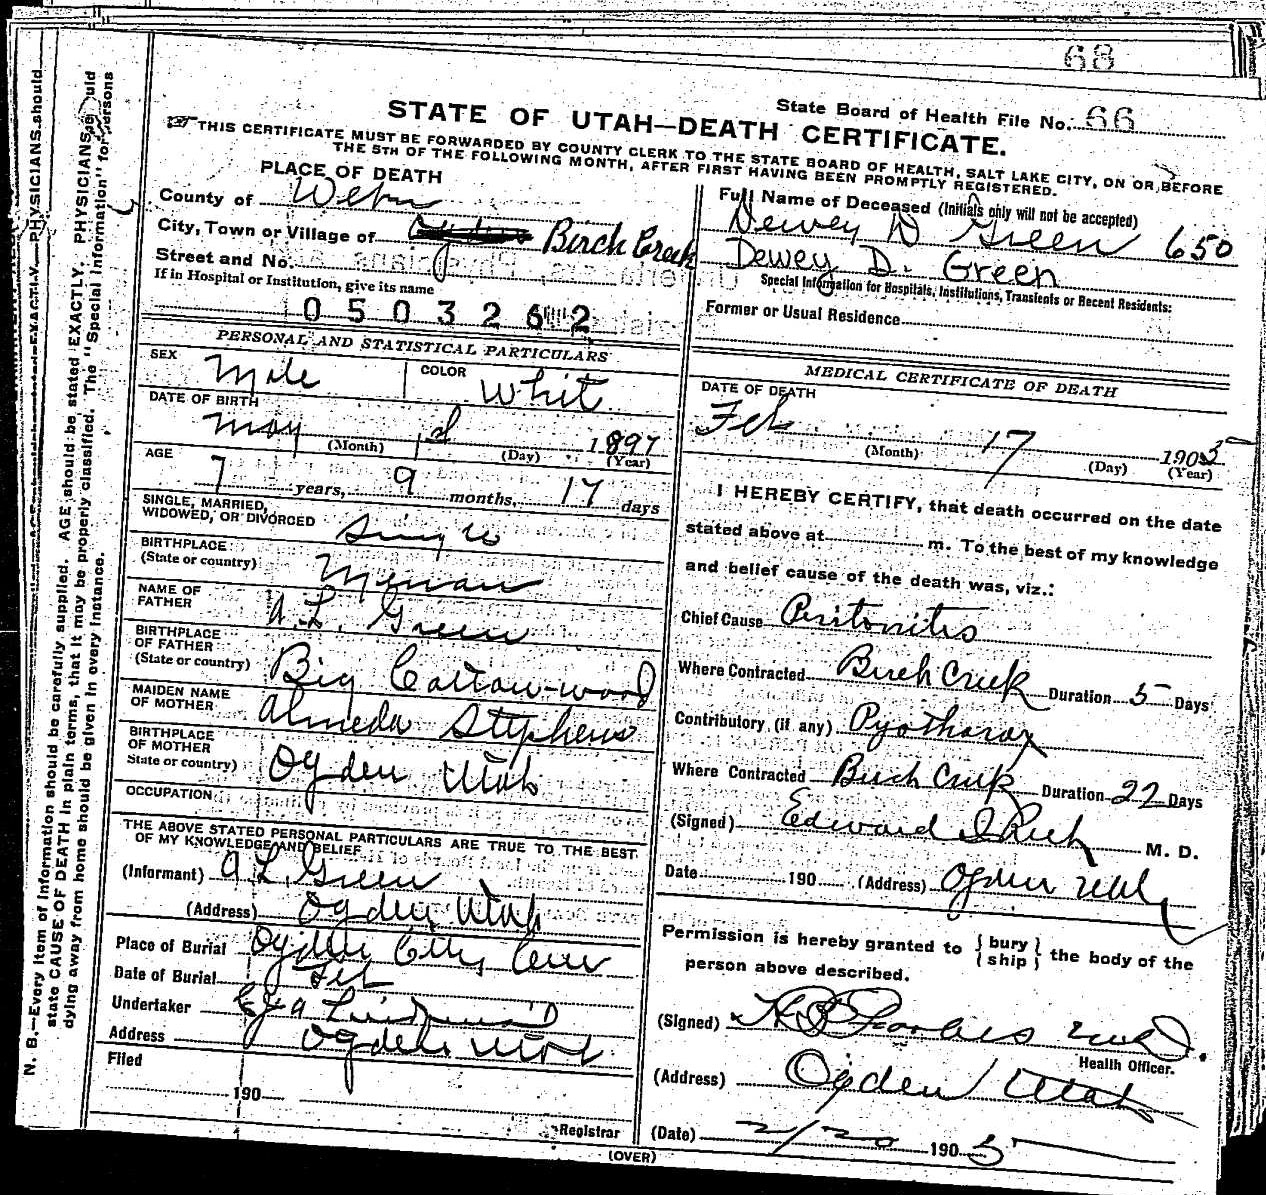 68
State Board of Health File No. 66
STATE OF UTAH—DEATH CERTIFICATE.
THIS CERTIFICATE MUST BE FORWARDED BY COUNTY CLERK TO THE STATE BOARD OF HEALTH, SALT LAKE CITY, ON OR BEFORE
THE 5TH OF THE FOLLOWING MONTH, AFTER FIRST HAVING BEEN PROMPTLY REGISTERED.
PLACE OF DEATH
County of Weber
City, Town or Village of Birch Creek
Street and No.
If in Hospital or Institution, give its name
0503262
Full Name of Deceased (Initials only will not be accepted)
Dewey D Green 650
Dewey D. Green
Special Information for Hospitals, Institutions, Transients or Recent Residents:
Former or Usual Residence
PERSONAL AND STATISTICAL PARTICULARS
SEX Male COLOR Whit
DATE OF BIRTH
May 1897
(Month) (Day) (Year)
AGE
7 years, 9 months, 17 days
SINGLE, MARRIED,
WIDOWED, OR DIVORCED Single
BIRTHPLACE
(State or country)
NAME OF
FATHER A. L. Green
BIRTHPLACE
OF FATHER
(State or country) Big Cottonwood
MAIDEN NAME
OF MOTHER Almeda Stephens
BIRTHPLACE
OF MOTHER
State or country) Ogden Utah
OCCUPATION
THE ABOVE STATED PERSONAL PARTICULARS ARE TRUE TO THE BEST
OF MY KNOWLEDGE AND BELIEF
(Informant) A. L. Green
(Address) Ogden Utah
Place of Burial Ogden City Cem
Date of Burial Feb
Undertaker
Address Ogden Utah
Filed
190
Registrar
MEDICAL CERTIFICATE OF DEATH
DATE OF DEATH
Feb 17 1905
(Month) (Day) (Year)
I HEREBY CERTIFY, that death occurred on the date
stated above at m. To the best of my knowledge
and belief cause of the death was, viz.:
Chief Cause Peritonitis
Where Contracted Birch Creek Duration 5 Days
Contributory (if any) Pyothorax
Where Contracted Birch Creek Duration 22 Days
(Signed) Edward I Rich M. D.
Date 190 (Address) Ogden Utah
Permission is hereby granted to { bury ship } the body of the
person above described.
(Signed)
Health Officer.
(Address) Ogden Utah
(Date) 2/20 1905
(OVER)
N. B.—Every item of information should be carefully supplied. AGE should be stated EXACTLY. PHYSICIANS should
state CAUSE OF DEATH in plain terms, that it may be properly classified. The "Special Information" for persons
dying away from home should be given in every instance.